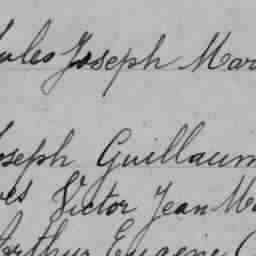 Jules Joseph Mar
Joseph Guillaum
ves Victor Jean Ma
Arthur Eugène